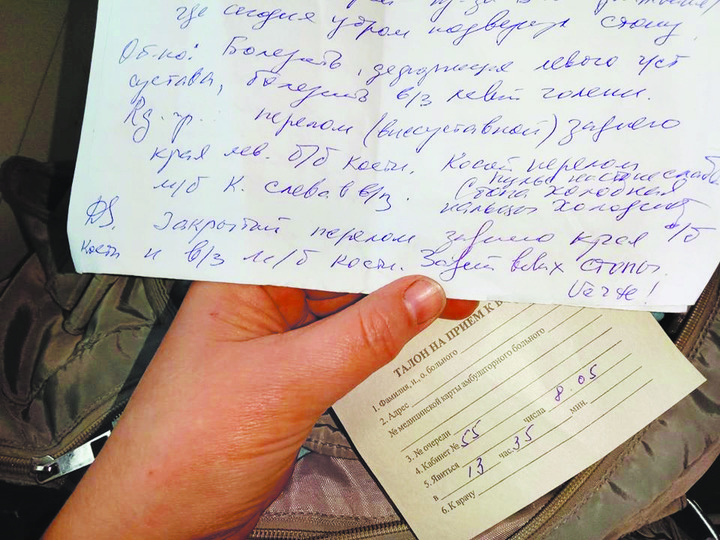 где сегодня утром подвернул стопу.
Об-но: Болезнь, деформация левого г/ст
сустава, болезнь в/з левой голени.
Rg. гр.: перелом (внесуставной) заднего
края лев. б/б кости. Косой перелом
м/б к. слева в в/з. Стопа холодная
пальцы холодные
DS. Закрытый перелом заднего края б/б
кости и в/з м/б кости. Задний вывих стопы.
ТАЛОН НА ПРИЕМ К В
1. Фамилия, и., о. больного
2. Адрес
№ медицинской карты амбулаторного больного
3. № очереди числа 8.05
4. Кабинет № 55
5. Явиться
в 13 час. 35 мин.
6. К врачу